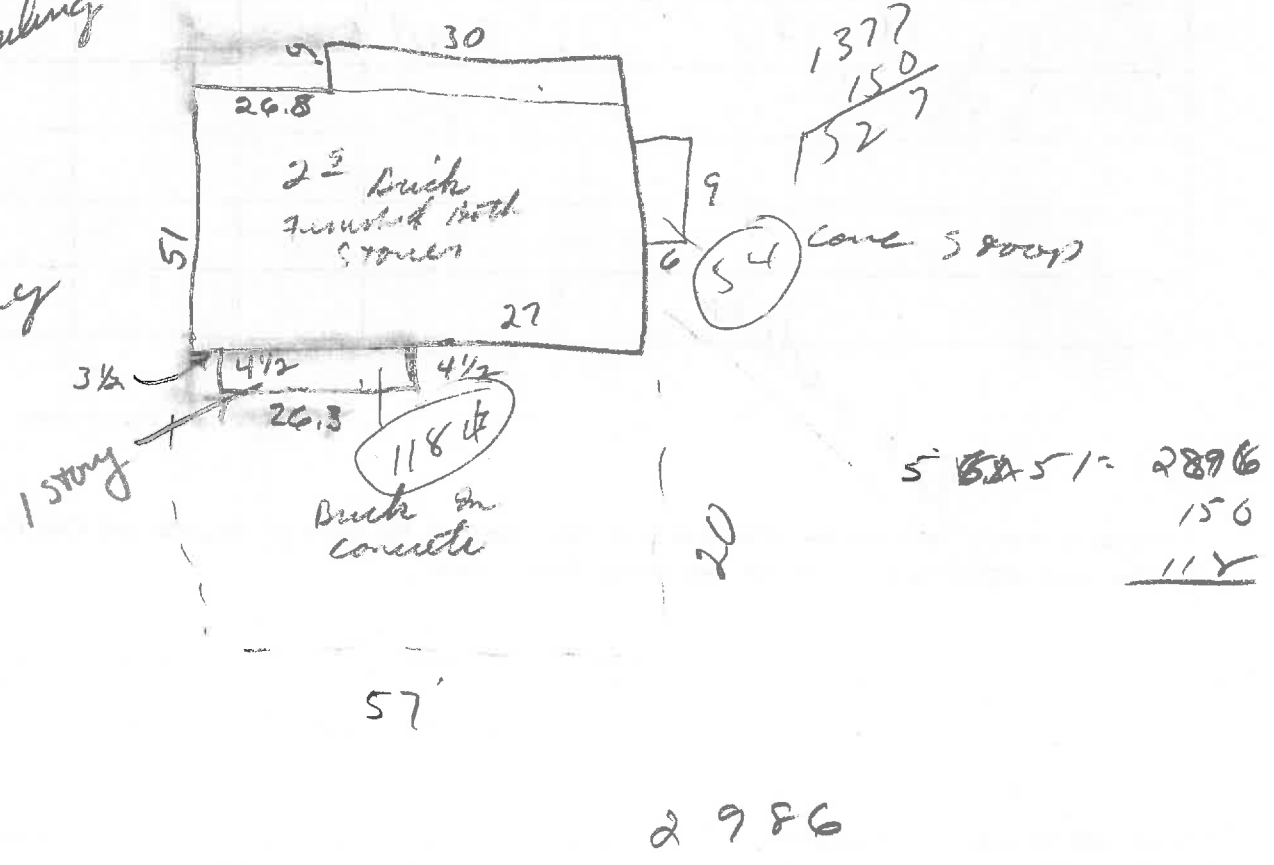 30
5
26.8
1377
150
1527
2 S Brick
Finished Both
Stories
51
9
6
54
Conc Stoop
27
3 1/2
4 1/2
4 1/2
26.3
118 #
1 story
Brick on
concrete
20
51 = 2896
150
118
57'
2986